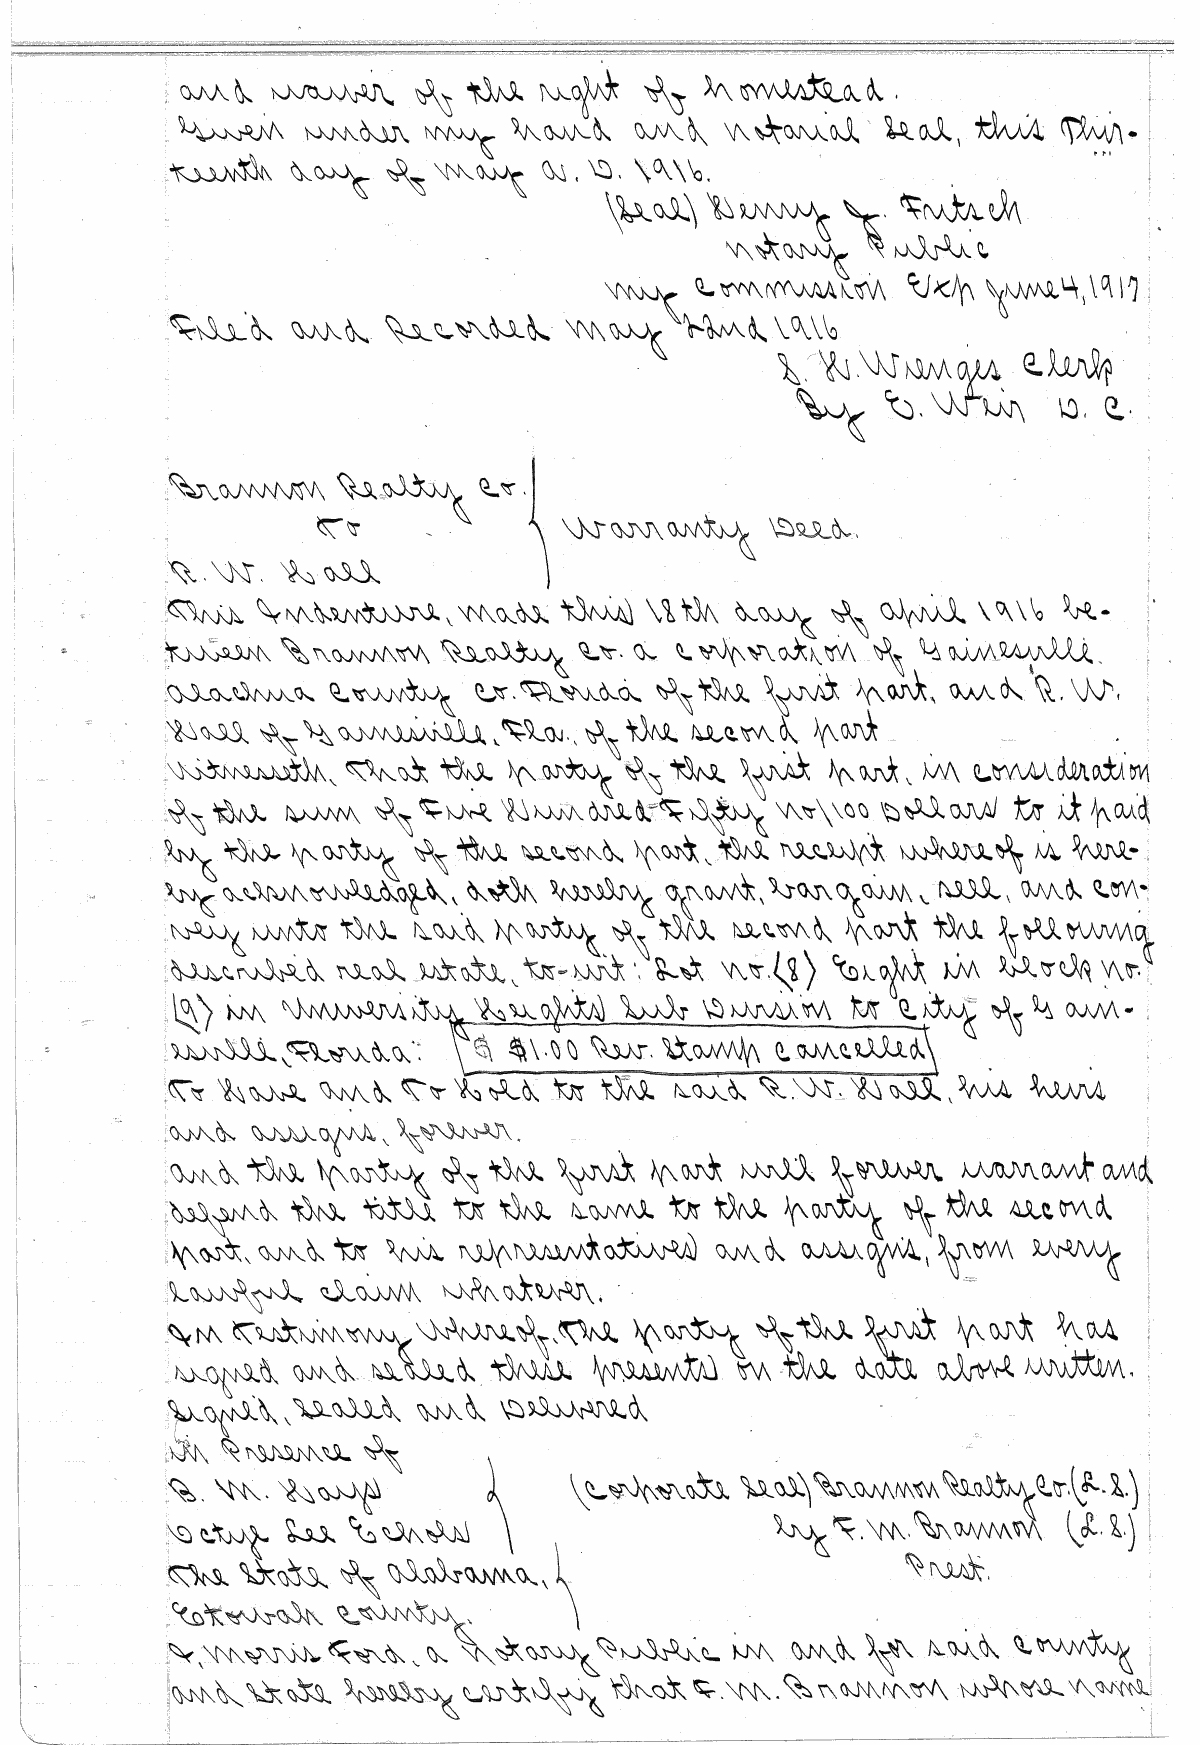 and waiver of the right of homestead.
Given under my hand and notarial seal, this Thir-
teenth day of May A. D. 1916.
(Seal) Henry J. Fritsch
Notary Public
My commission Exp June 4, 1917
Filed and Recorded May 22nd 1916
S. H. Wienges Clerk
By E. Weir D. C.
Brannon Realty Co.
To
Warranty Deed.
R. W. Hall
This Indenture, made this 18th day of April 1916 be-
tween Brannon Realty Co. a corporation of Gainesville.
Alachua County Co. Florida of the first part, and R. W.
Hall of Gainesville, Fla., of the second part
Witnesseth, That the party of the first part, in consideration
of the sum of Five Hundred Fifty no/100 Dollars to it paid
by the party of the second part, the receipt whereof is here-
by acknowledged, doth hereby grant, bargain, sell, and con-
vey unto the said party of the second part the following
described real estate, to-wit: Lot no. (8) Eight in block no.
(9) in University Heights Sub Division to City of Gain-
esville, Florida: $1.00 Rev. Stamp cancelled
To Have and To Hold to the said R. W. Hall, his heirs
and assigns, forever.
And the party of the first part will forever warrant and
defend the title to the same to the party of the second
part, and to his representatives and assigns, from every
lawful claim whatever.
In Testimony Whereof, The party of the first part has
signed and sealed these presents on the date above written.
Signed, Sealed and Delivered
in Presence of
B. M. Hays
(Corporate Seal) Brannon Realty Co. (L. S.)
Octye Lee Echols
by F. M. Brannon (L. S.)
Prest.
The State of Alabama,
Etowah County.
I, Morris Ford, a Notary Public in and for said county
and State hereby certify that F. M. Brannon whose name